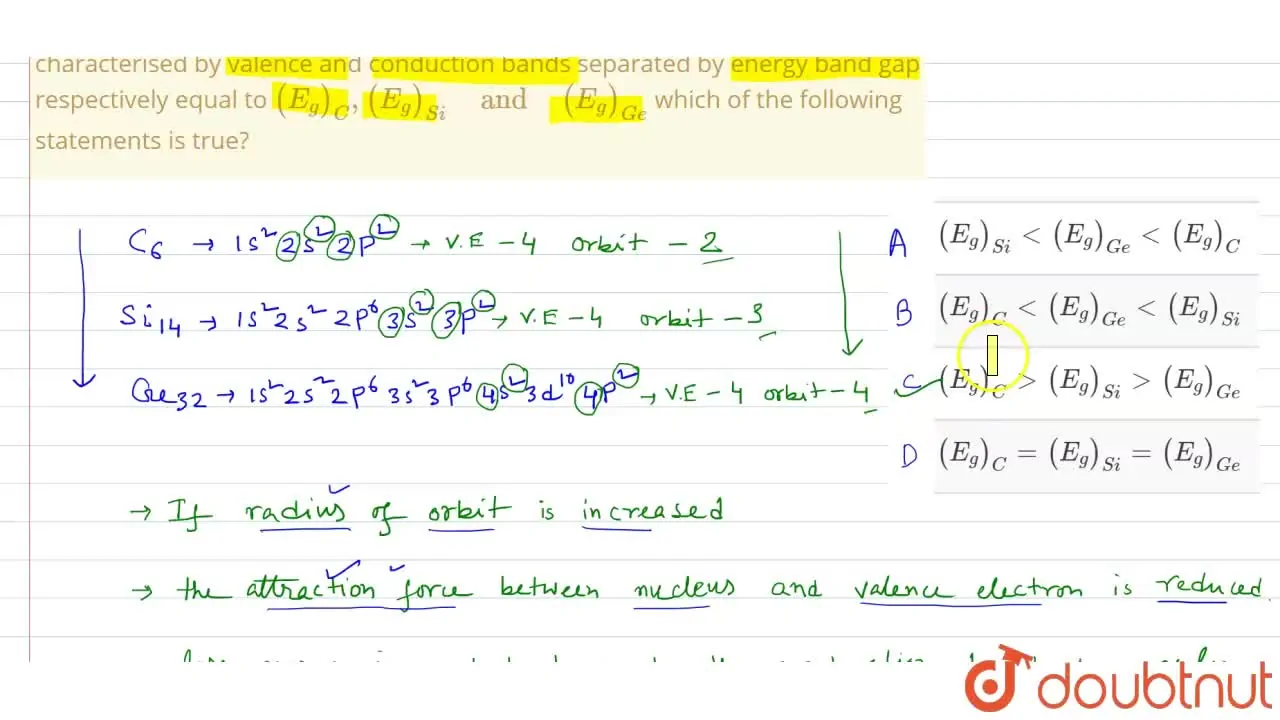 characterised by valence and conduction bands separated by energy band gap
respectively equal to (E_g)_C, (E_g)_Si and (E_g)_Ge which of the following
statements is true?
C₆ → 1s² 2s² 2p² → V.E - 4 orbit - 2
Si₁₄ → 1s² 2s² 2p⁶ 3s² 3p² → V.E - 4 orbit - 3
Ge₃₂ → 1s² 2s² 2p⁶ 3s² 3p⁶ 4s² 3d¹⁰ 4p² → V.E - 4 orbit - 4
A (E_g)_Si < (E_g)_Ge < (E_g)_C
B (E_g)_C < (E_g)_Ge < (E_g)_Si
C (E_g)_C > (E_g)_Si > (E_g)_Ge
D (E_g)_C = (E_g)_Si = (E_g)_Ge
→ If radius of orbit is increased
→ the attraction force between nucleus and valence electron is reduced.
doubtnut